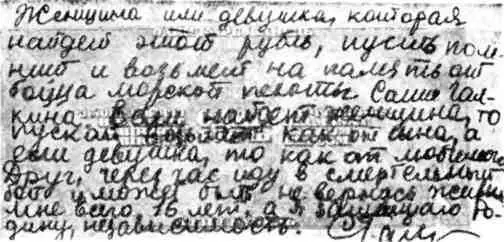 Женщина или девушка, которая
найдет этот рубль, пусть пом-
нит и возьмет на память от
бойца морской пехоты Саши Гал-
кина. Если найдет женщина, то
пускай возьмет как от сына, а
если девушка, то как от любимого
Друг, через час иду в смертельный
бой и может быть не вернусь живым
мне всего 16 лет, а я защищаю Ро-
дину, независимость. Саша